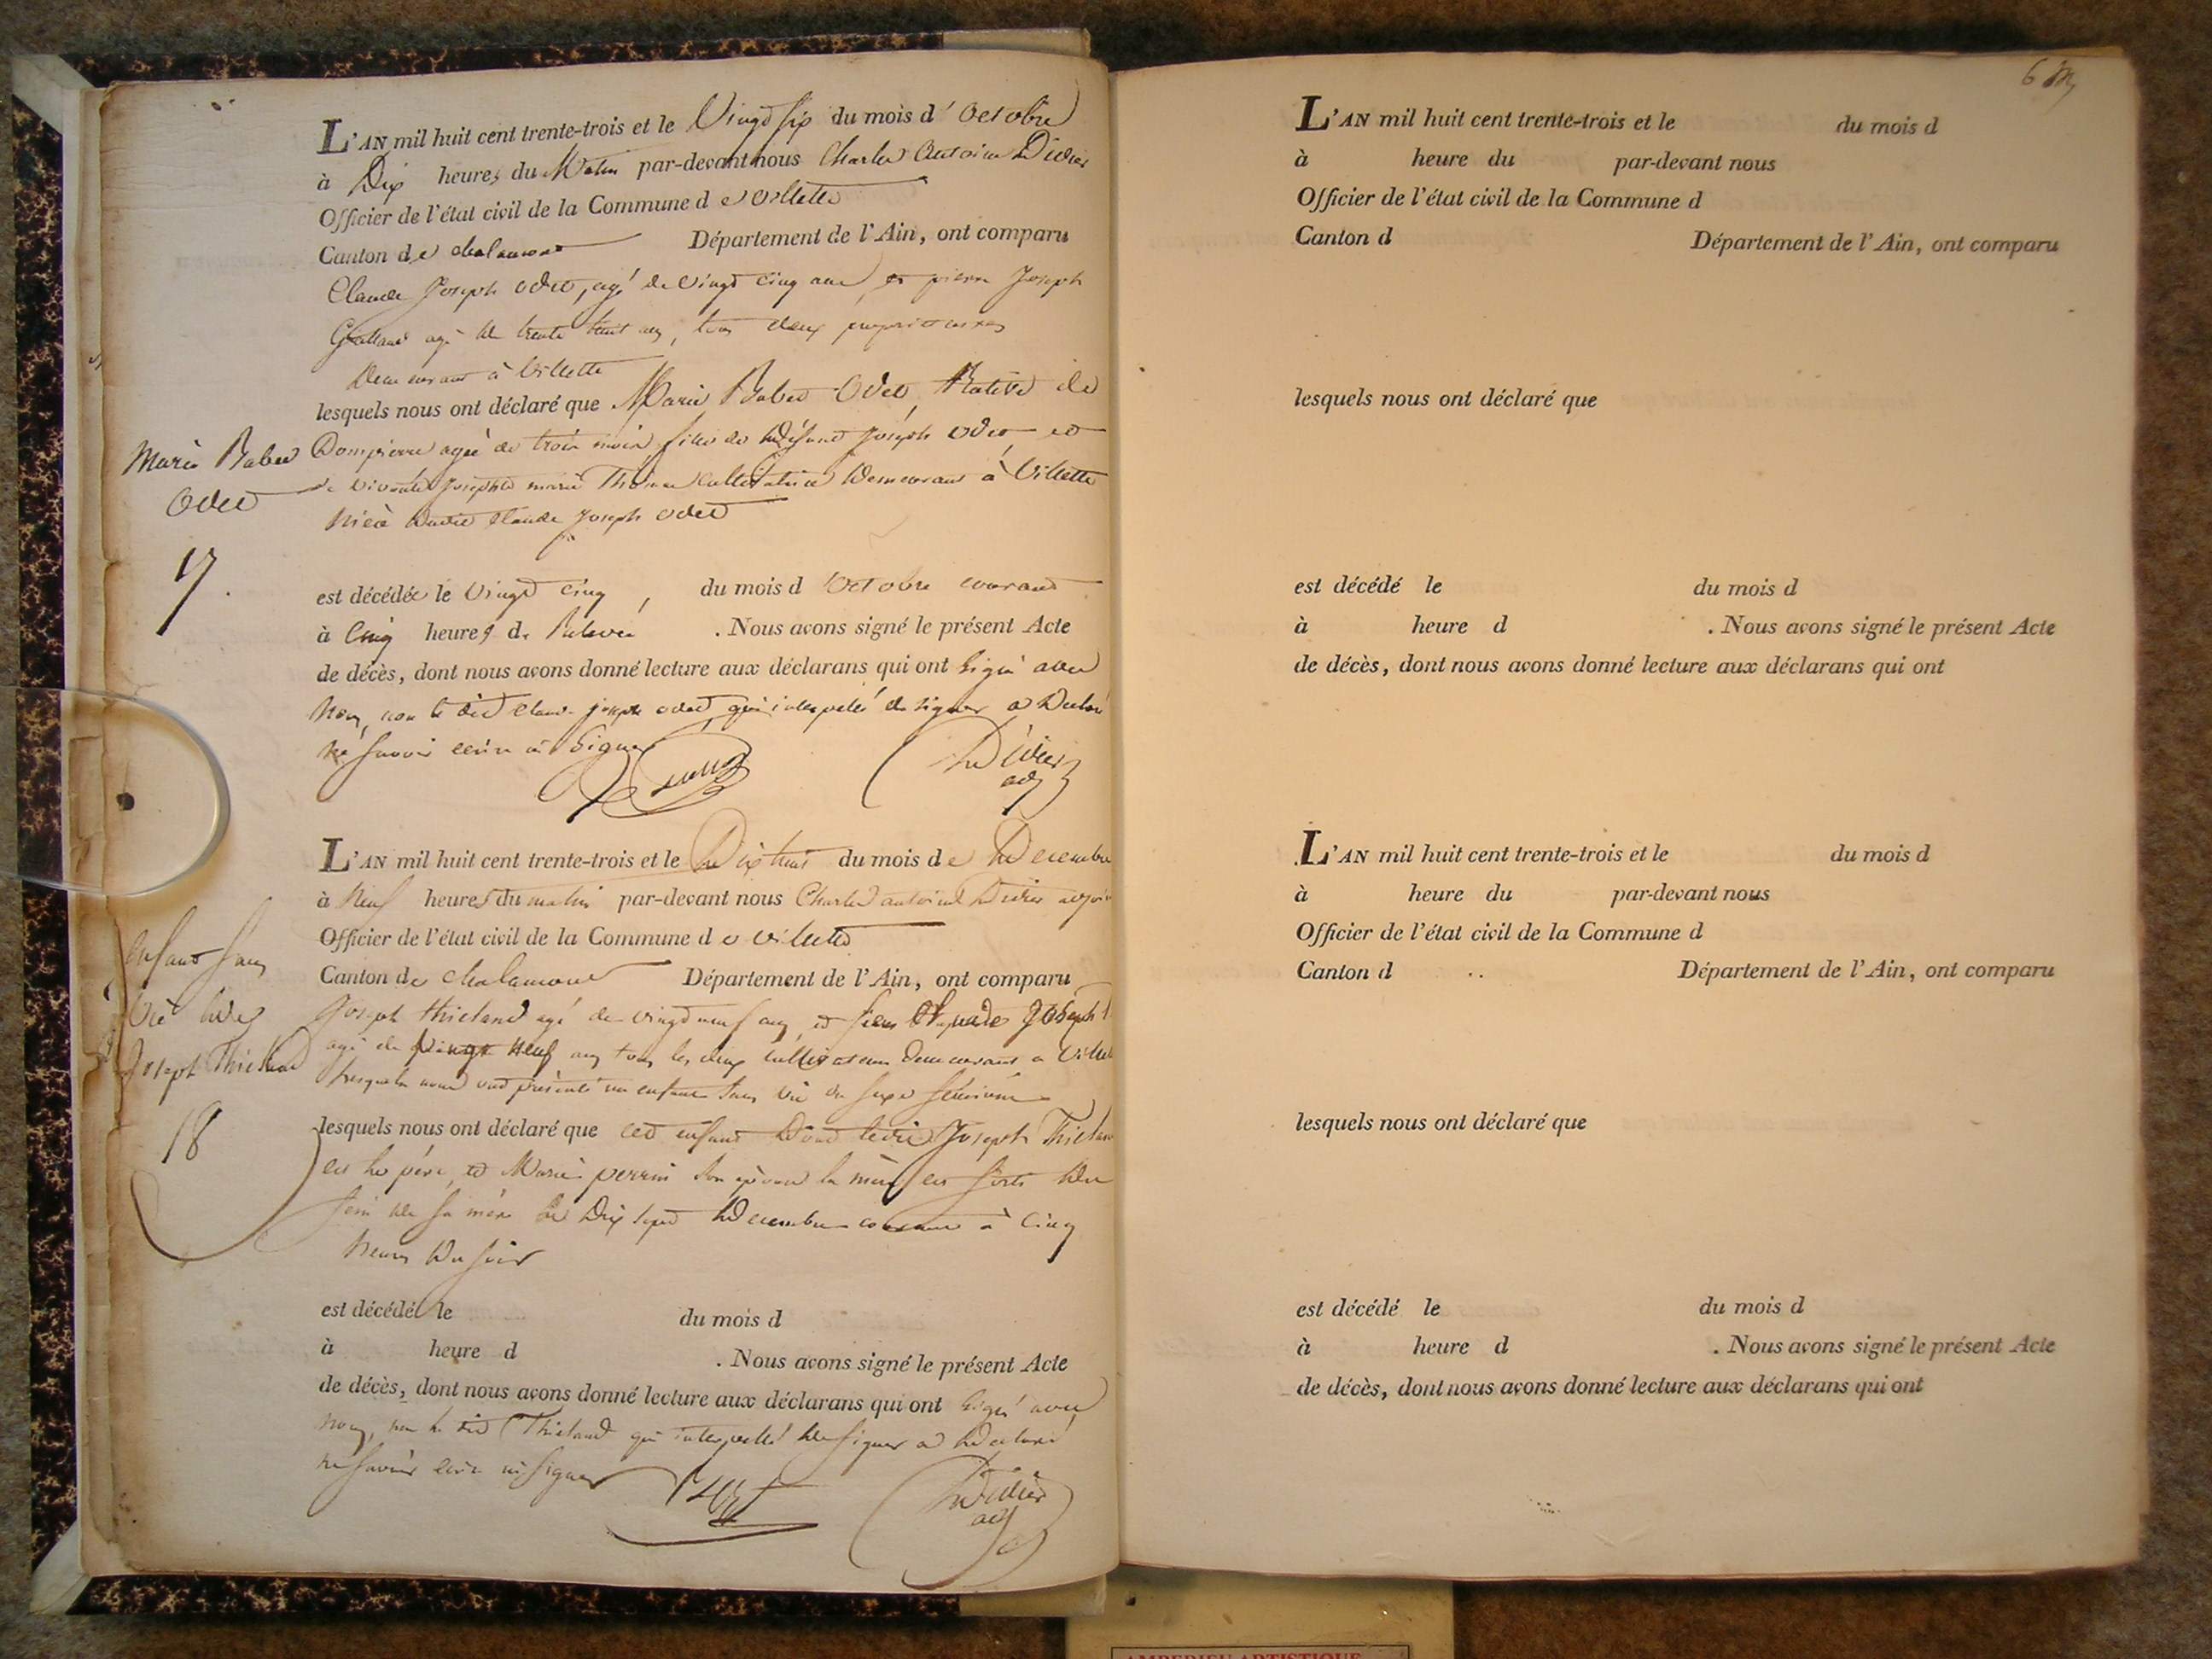 L'AN mil huit cent trente-trois et le Vingt six du mois d'Octobre
à Dix heures du Matin par-devant nous Charles Antoine Didier
Officier de l'état civil de la Commune de villette
Canton de chalamont Département de l'Ain, ont comparu
Claude Joseph odet, agé de vingt cinq ans et pierre Joseph
agé de trente huit ans, tous deux propriétaires
Demeurant à Villette
lesquels nous ont déclaré que Marie Odet, Native de
Marie
Odet
17.
Dompierre agée de trois mois, fille de défunt Joseph odet et
de vivante Josephte marie cultivatrice Demeurant à Villette
Nièce dudit Claude Joseph odet
est décédée le vingt cinq, du mois d'Octobre courant
à Cinq heures de . Nous avons signé le présent Acte
de décès, dont nous avons donné lecture aux déclarans qui ont signé avec
Nous, non le dit Claude joseph odet, qui interpellé de signer a déclaré
ne savoir écrire ni signer
Didier
adj
L'AN mil huit cent trente-trois et le Dix huit du mois de Decembre
à Neuf heures du matin par-devant nous Charles antoine Didier adjoint
Officier de l'état civil de la Commune de villette
Canton de chalamont Département de l'Ain, ont comparu
Enfant sans
Vie de
Joseph Thieland
18
Joseph thieland agé de vingt neuf ans, et Joseph
agé de neuf ans tous les deux cultivateurs demeurant a
lesquels nous ont présenté un enfant sans vie du sexe féminin
lesquels nous ont déclaré que cet enfant dont ledit Joseph Thieland
est le père, et Marie perrin son épouse la mère est sorti du
sein de sa mère le Dix sept Decembre courant à Cinq
heures du soir
est décédé le du mois d
à heure d . Nous avons signé le présent Acte
de décès, dont nous avons donné lecture aux déclarans qui ont signé avec
nous, non le dit Thieland qui interpellé de signer a déclaré
ne savoir écrire ni signer
Didier
adj
6
L'AN mil huit cent trente-trois et le du mois d
à heure du par-devant nous
Officier de l'état civil de la Commune d
Canton d Département de l'Ain, ont comparu
lesquels nous ont déclaré que
est décédé le du mois d
à heure d . Nous avons signé le présent Acte
de décès, dont nous avons donné lecture aux déclarans qui ont
L'AN mil huit cent trente-trois et le du mois d
à heure du par-devant nous
Officier de l'état civil de la Commune d
Canton d Département de l'Ain, ont comparu
lesquels nous ont déclaré que
est décédé le du mois d
à heure d . Nous avons signé le présent Acte
de décès, dont nous avons donné lecture aux déclarans qui ont
AMBERIEU ARTISTIQUE